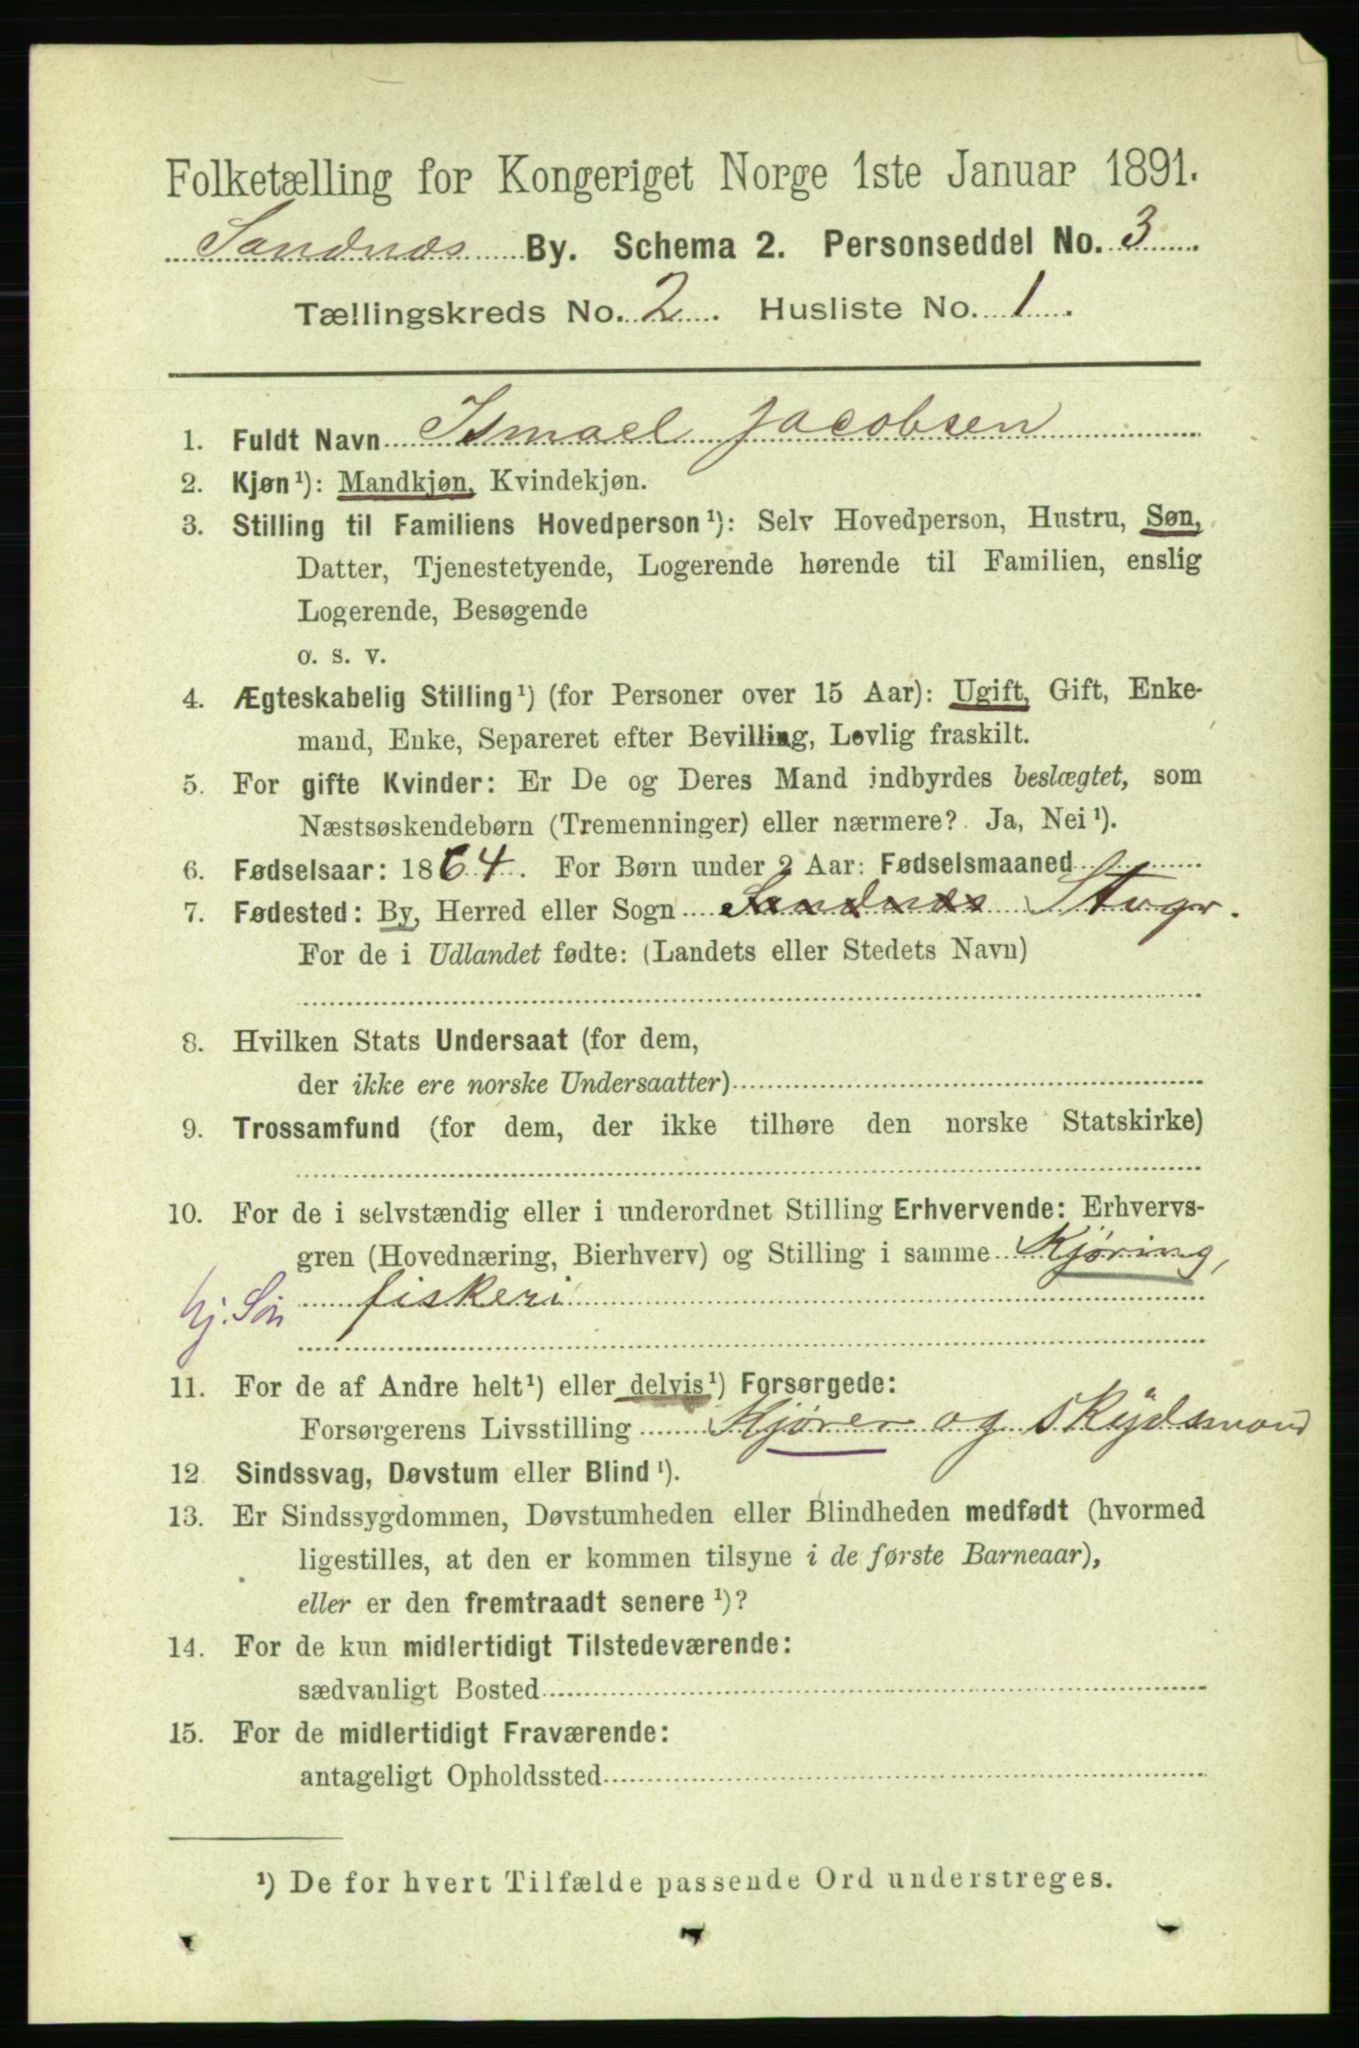 Folketælling for Kongeriget Norge 1ste Januar 1891.
Sandnæs By. Schema 2. Personseddel No. 3
Tællingskreds No. 2. Husliste No. 1.
1. Fuldt Navn Ismael Jacobsen
2. Kjøn¹): Mandkjøn, Kvindekjøn.
3. Stilling til Familiens Hovedperson¹): Selv Hovedperson, Hustru, Søn,
Datter, Tjenestetyende, Logerende hørende til Familien, enslig
Logerende, Besøgende
o. s. v.
4. Ægteskabelig Stilling¹) (for Personer over 15 Aar): Ugift, Gift, Enke-
mand, Enke, Separeret efter Bevilling, Lovlig fraskilt.
5. For gifte Kvinder: Er De og Deres Mand indbyrdes beslægtet, som
Næstsøskendebørn (Tremenninger) eller nærmere? Ja, Nei¹).
6. Fødselsaar: 1864. For Børn under 2 Aar: Fødselsmaaned
7. Fødested: By, Herred eller Sogn Sandnæs Stvgr.
For de i Udlandet fødte: (Landets eller Stedets Navn)
8. Hvilken Stats Undersaat (for dem,
der ikke ere norske Undersaatter)
9. Trossamfund (for dem, der ikke tilhøre den norske Statskirke)
10. For de i selvstændig eller i underordnet Stilling Erhvervende: Erhvervs-
gren (Hovednæring, Bierhverv) og Stilling i samme Kjøring,
hj. Søn fiskeri
11. For de af Andre helt¹) eller delvis¹) Forsørgede:
Forsørgerens Livsstilling Kjører og skydsmand
12. Sindssvag, Døvstum eller Blind¹).
13. Er Sindssygdommen, Døvstumheden eller Blindheden medfødt (hvormed
ligestilles, at den er kommen tilsyne i de første Barneaar),
eller er den fremtraadt senere¹)?
14. For de kun midlertidigt Tilstedeværende:
sædvanligt Bosted
15. For de midlertidigt Fraværende:
antageligt Opholdssted
¹) De for hvert Tilfælde passende Ord understreges.